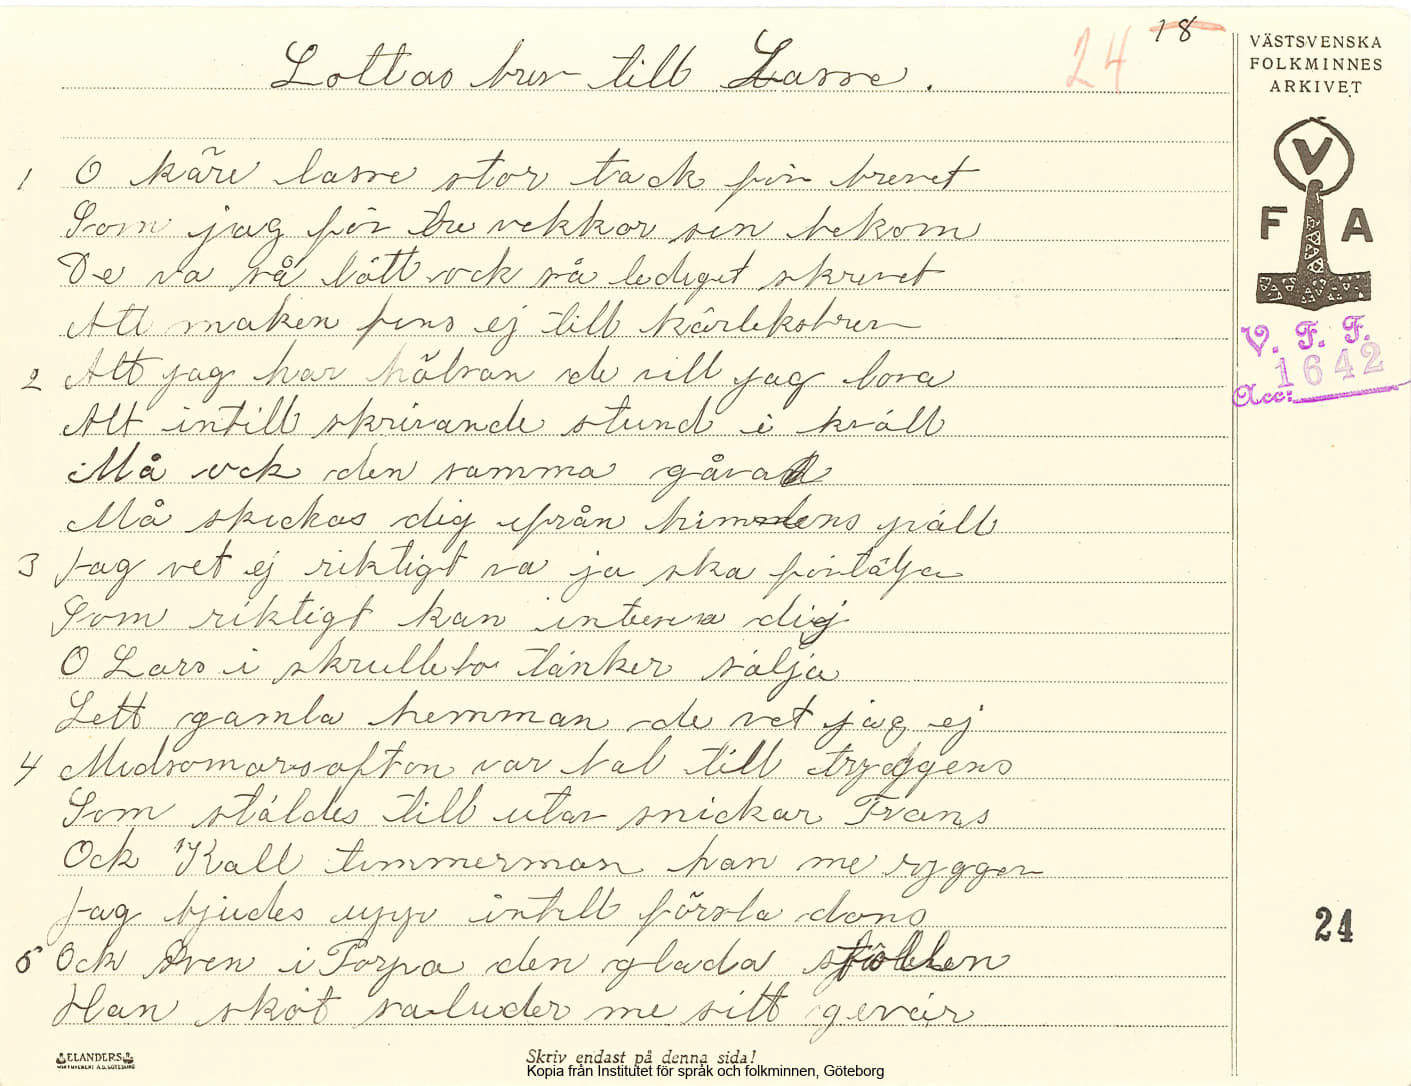 Lottas brev till Lasse.
24 18
VÄSTSVENSKA
FOLKMINNES
ARKIVET
V
F A
V. F. F.
1642
Acc:
1 O käre lasse stor tack för brevet
Som jag för tre vekkor sen bekom
De va så lätt ock så lediget skrevet
Att maken fins ej till kärleksbrev
2 Alt jag har hälsan de vill jag lova
Alt intill skrivande stund i kväll
Må ock den samma gåvan
Må skickas dig ifrån himmlens päll
3 Jag vet ej riktigt va ja ska förtälja
Som riktigt kan intresera dig
O Lars i skrullebo tänker sälja
Sett gamla hemman de vet jag ej
4 Midsomarsafton var bal till tryggens
Som stäldes till utav snickar Frans
Ock Kall timmerman han me ryggen
Jag bjudes upp intill första dans
5 Ock Sven i Torpa den glada
Han sköt saluder me sitt gevär
24
ELANDERS
Skriv endast på denna sida!
Kopia från Institutet för språk och folkminnen, Göteborg